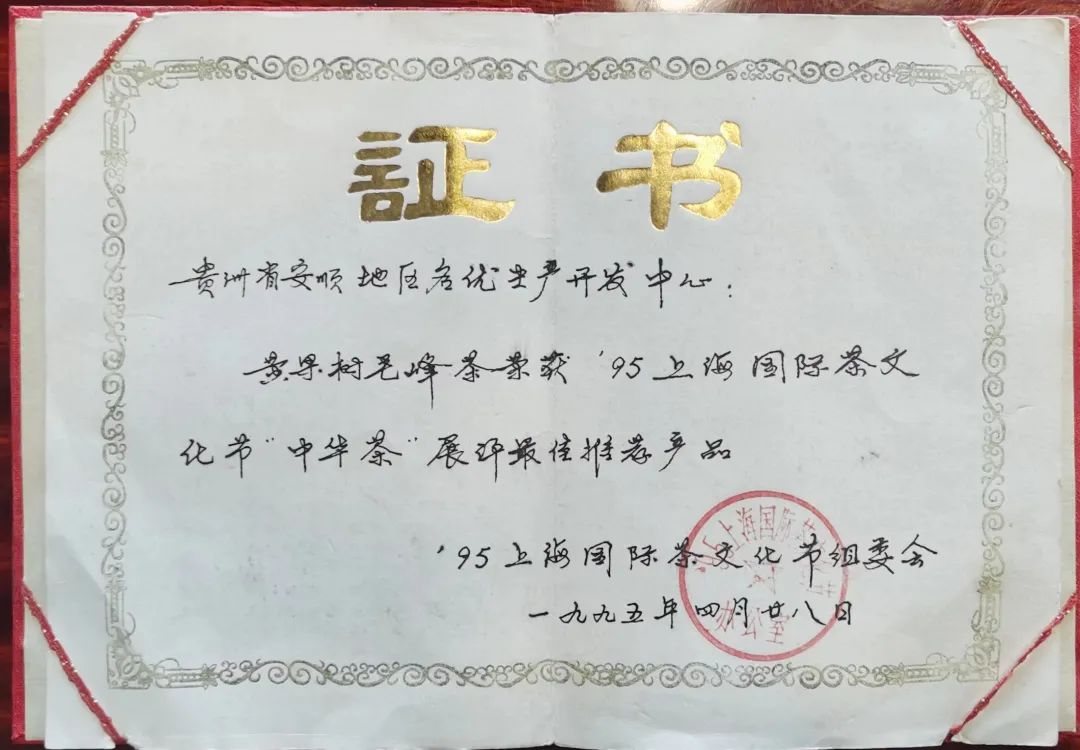 証书
贵州省安顺地区名优生产开发中心：
黄果树毛峰茶荣获'95上海国际茶文
化节"中华茶"展评最佳推荐产品
'95上海国际茶文化节组委会
一九九五年四月廿八日
上海国际茶
办公室